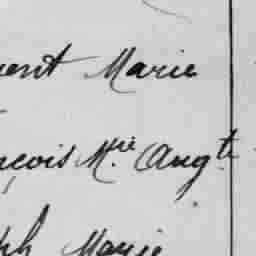 ent Marie
nçois M.rie Aug.te
ph Marie